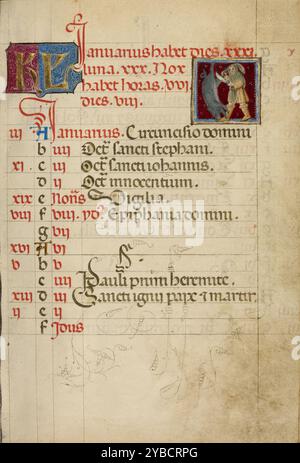 KL Ianuarius habet dies. xxxi.
luna. xxx. Nox
habet horas. xvi.
dies. viii.
iii A Ianuarius. Circuncisio domini
b iiii Oct̄ sancti stephani.
xi. c iii Oct̄ sancti iohannis.
d ii Oct̄ innocentium.
xix e Non̄s Vigilia.
viii f viii. yd̄. Epiphania domini.
g vii
xvi A vi
v b v
c iiii Pauli primi heremite.
xiii d iii Sancti igini pape et martir.
ii e ii
f Idus
alamy
Image ID: 2YBCRPG
www.alamy.com